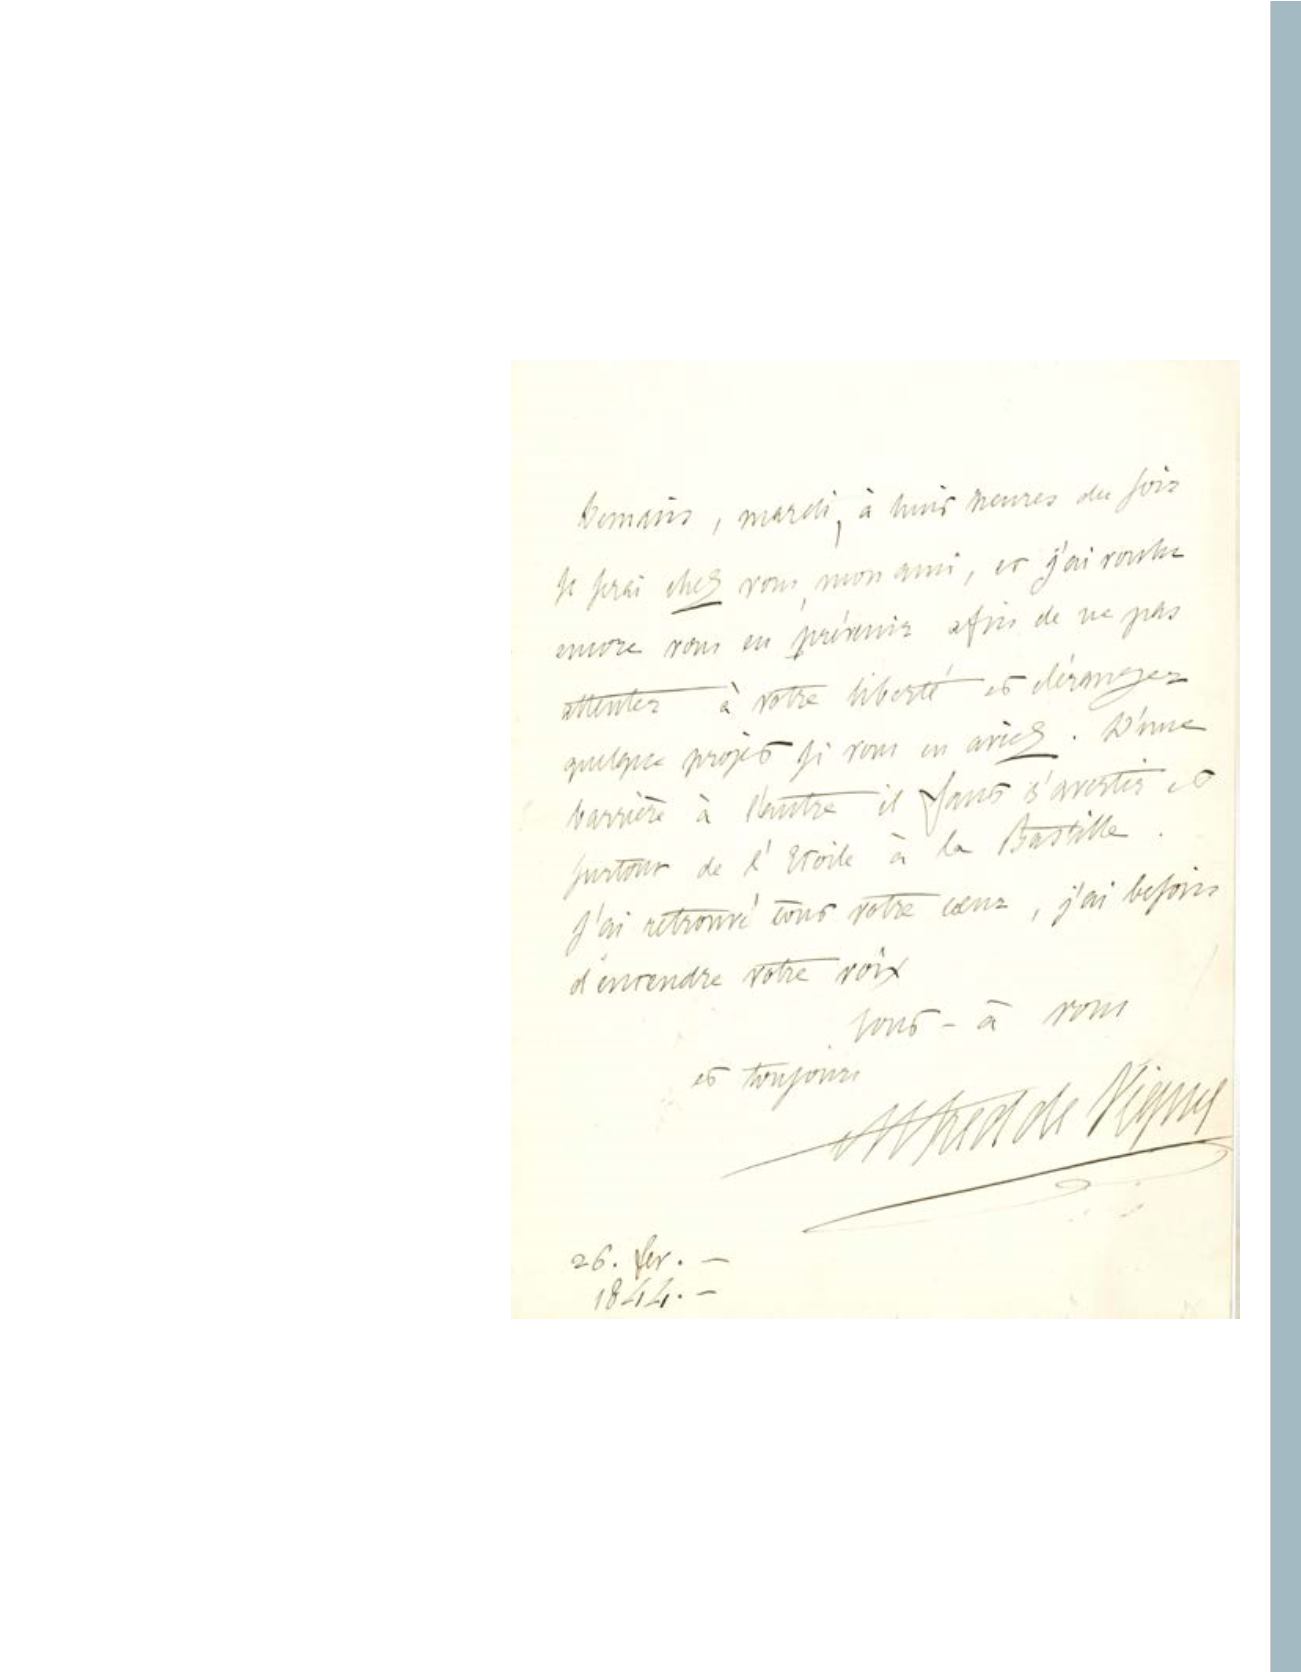 Demain, mardi, à huit heures du soir
je serai chez vous, mon ami, et j'ai voulu
encore vous en prévenir afin de ne pas
attenter à votre liberté et déranger
quelque projet si vous en aviez. D'une
barrière à l'autre il faut s'avertir et
surtout de l'Etoile à la Bastille.
J'ai retrouvé tout votre cœur, j'ai besoin
d'entendre votre voix
tout-à vous
et toujours
Alfred de Vigny
26. fev. —
1844. —